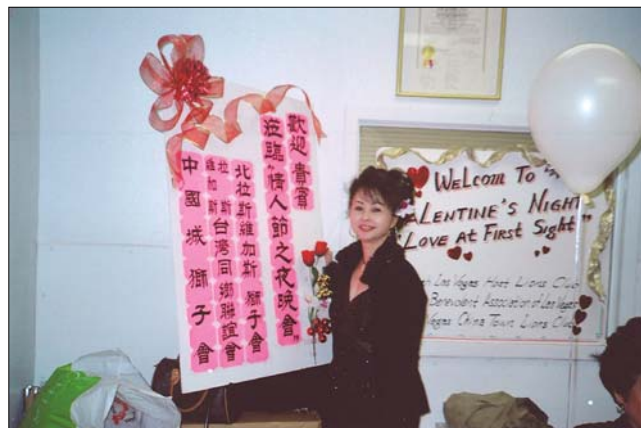 歡迎貴賓
蒞臨“情人節之夜晚會”
北拉斯維加斯 獅子會
拉斯維加斯台灣同鄉聯誼會
中國城獅子會
WELCOME TO
ALENTINE'S NIGHT
LOVE AT FIRST SIGHT"
h Las Vegas Host Lions Club
Benevolent Association of Las Vegas
Vegas China Town Lions Club